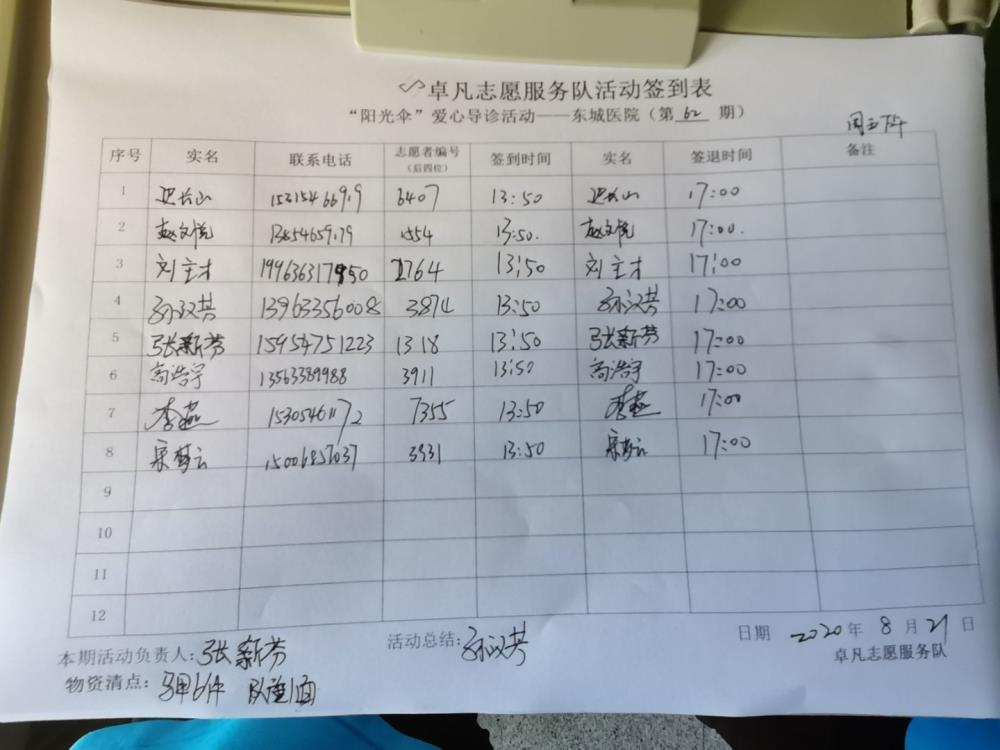 卓凡志愿服务队活动签到表
“阳光伞”爱心导诊活动——东城医院（第 62 期）
周五下午
序号 实名 联系电话 志愿者编号（后四位） 签到时间 实名 签退时间 备注
1 长山 15315466919 6407 13:50 长山 17:00
2 赵文悦 13854659179 1554 13:50. 赵文悦 17:00.
3 刘主才 199636317950 2764 13:50 刘主才 17:00
4 孙汉芬 13963356008 3874 13:50 孙汉芬 17:00
5 张新芬 15954751223 1318 13:50 张新芬 17:00
6 高浩宇 13563389988 3911 13:50 高浩宇 17:00
7 李燕 15305461172 7355 13:50 李燕 17:00
8 宋梦云 15006857037 3931 13:50 宋梦云 17:00
9
10
11
12
本期活动负责人：张新芬 活动总结：孙汉芬 日期 2020 年 8 月 21 日
物资清点：马甲6件 队旗1面 卓凡志愿服务队